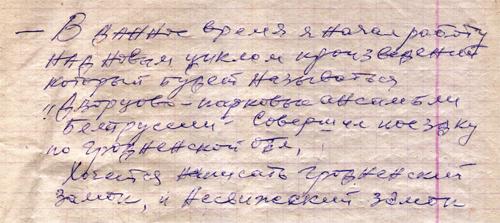 — В данное время я начал работу
над новым циклом произведений
который будет называться
"Дворцово-парковые ансамбли
Белоруссии" Совершил поездку
по Гродненской обл,
Хочется написать Гродненский
замок, и Несвижский замок